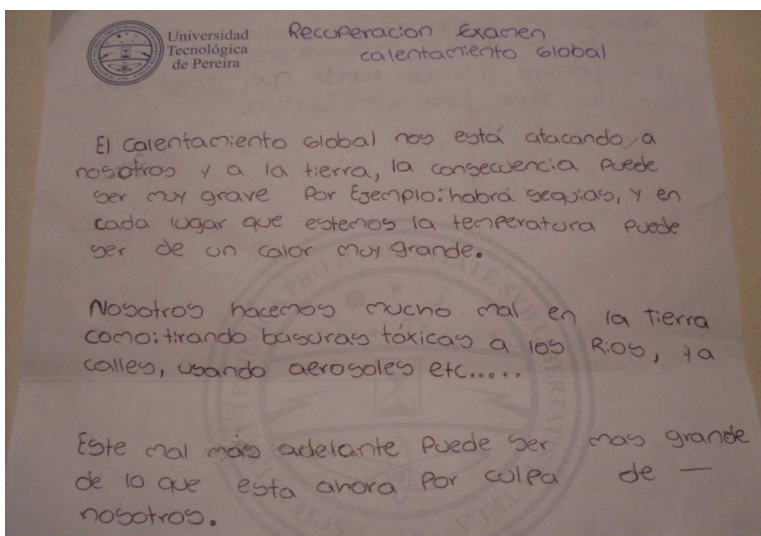 Universidad
Tecnológica
de Pereira
Recuperacion Examen
calentamiento Global
El calentamiento Global nos está atacando a
nosotros y a la tierra, la consecuencia puede
ser muy grave Por Ejemplo: habrá sequias, y en
cada lugar que estemos la temperatura puede
ser de un calor muy grande.
Nosotros hacemos mucho mal en la Tierra
como: tirando basuras tóxicas a los Rios, ya
calles, usando aerosoles etc.....
Este mal más adelante Puede ser mas grande
de lo que esta ahora Por culpa de —
nosotros.